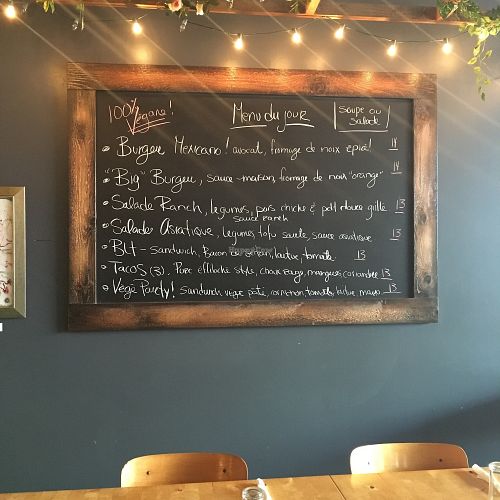 100% Végane!
Menu du jour
soupe ou
salade
Burger Mexicano! avocat, fromage de noix épicé! 14
"Big" Burger, sauce maison, fromage de noix "orange" 14
Salade Ranch, légumes, pois chiche & patate douce grillé 13
sauce ranch
Salade Asiatique, légumes, tofu sauté, sauce asiatique 13
BLT - sandwich, Bacon de seitan, laitue, tomate 13
Tacos (3), Porc effiloché style, chou rouge, mangues, coriandre 13
Végé Pâté! sandwich végé pâté, cornichon, tomate, laitue, mayo 13